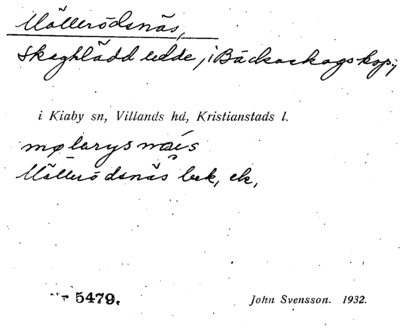 Mölleródsnäs,
Skogklädd udde, i Bäckaskogs kop;
i Kiaby sn, Villands hd, Kristianstads l.
mølarysnäis
Mölleródsnäs bek, ek,
5479.
John Svensson. 1932.